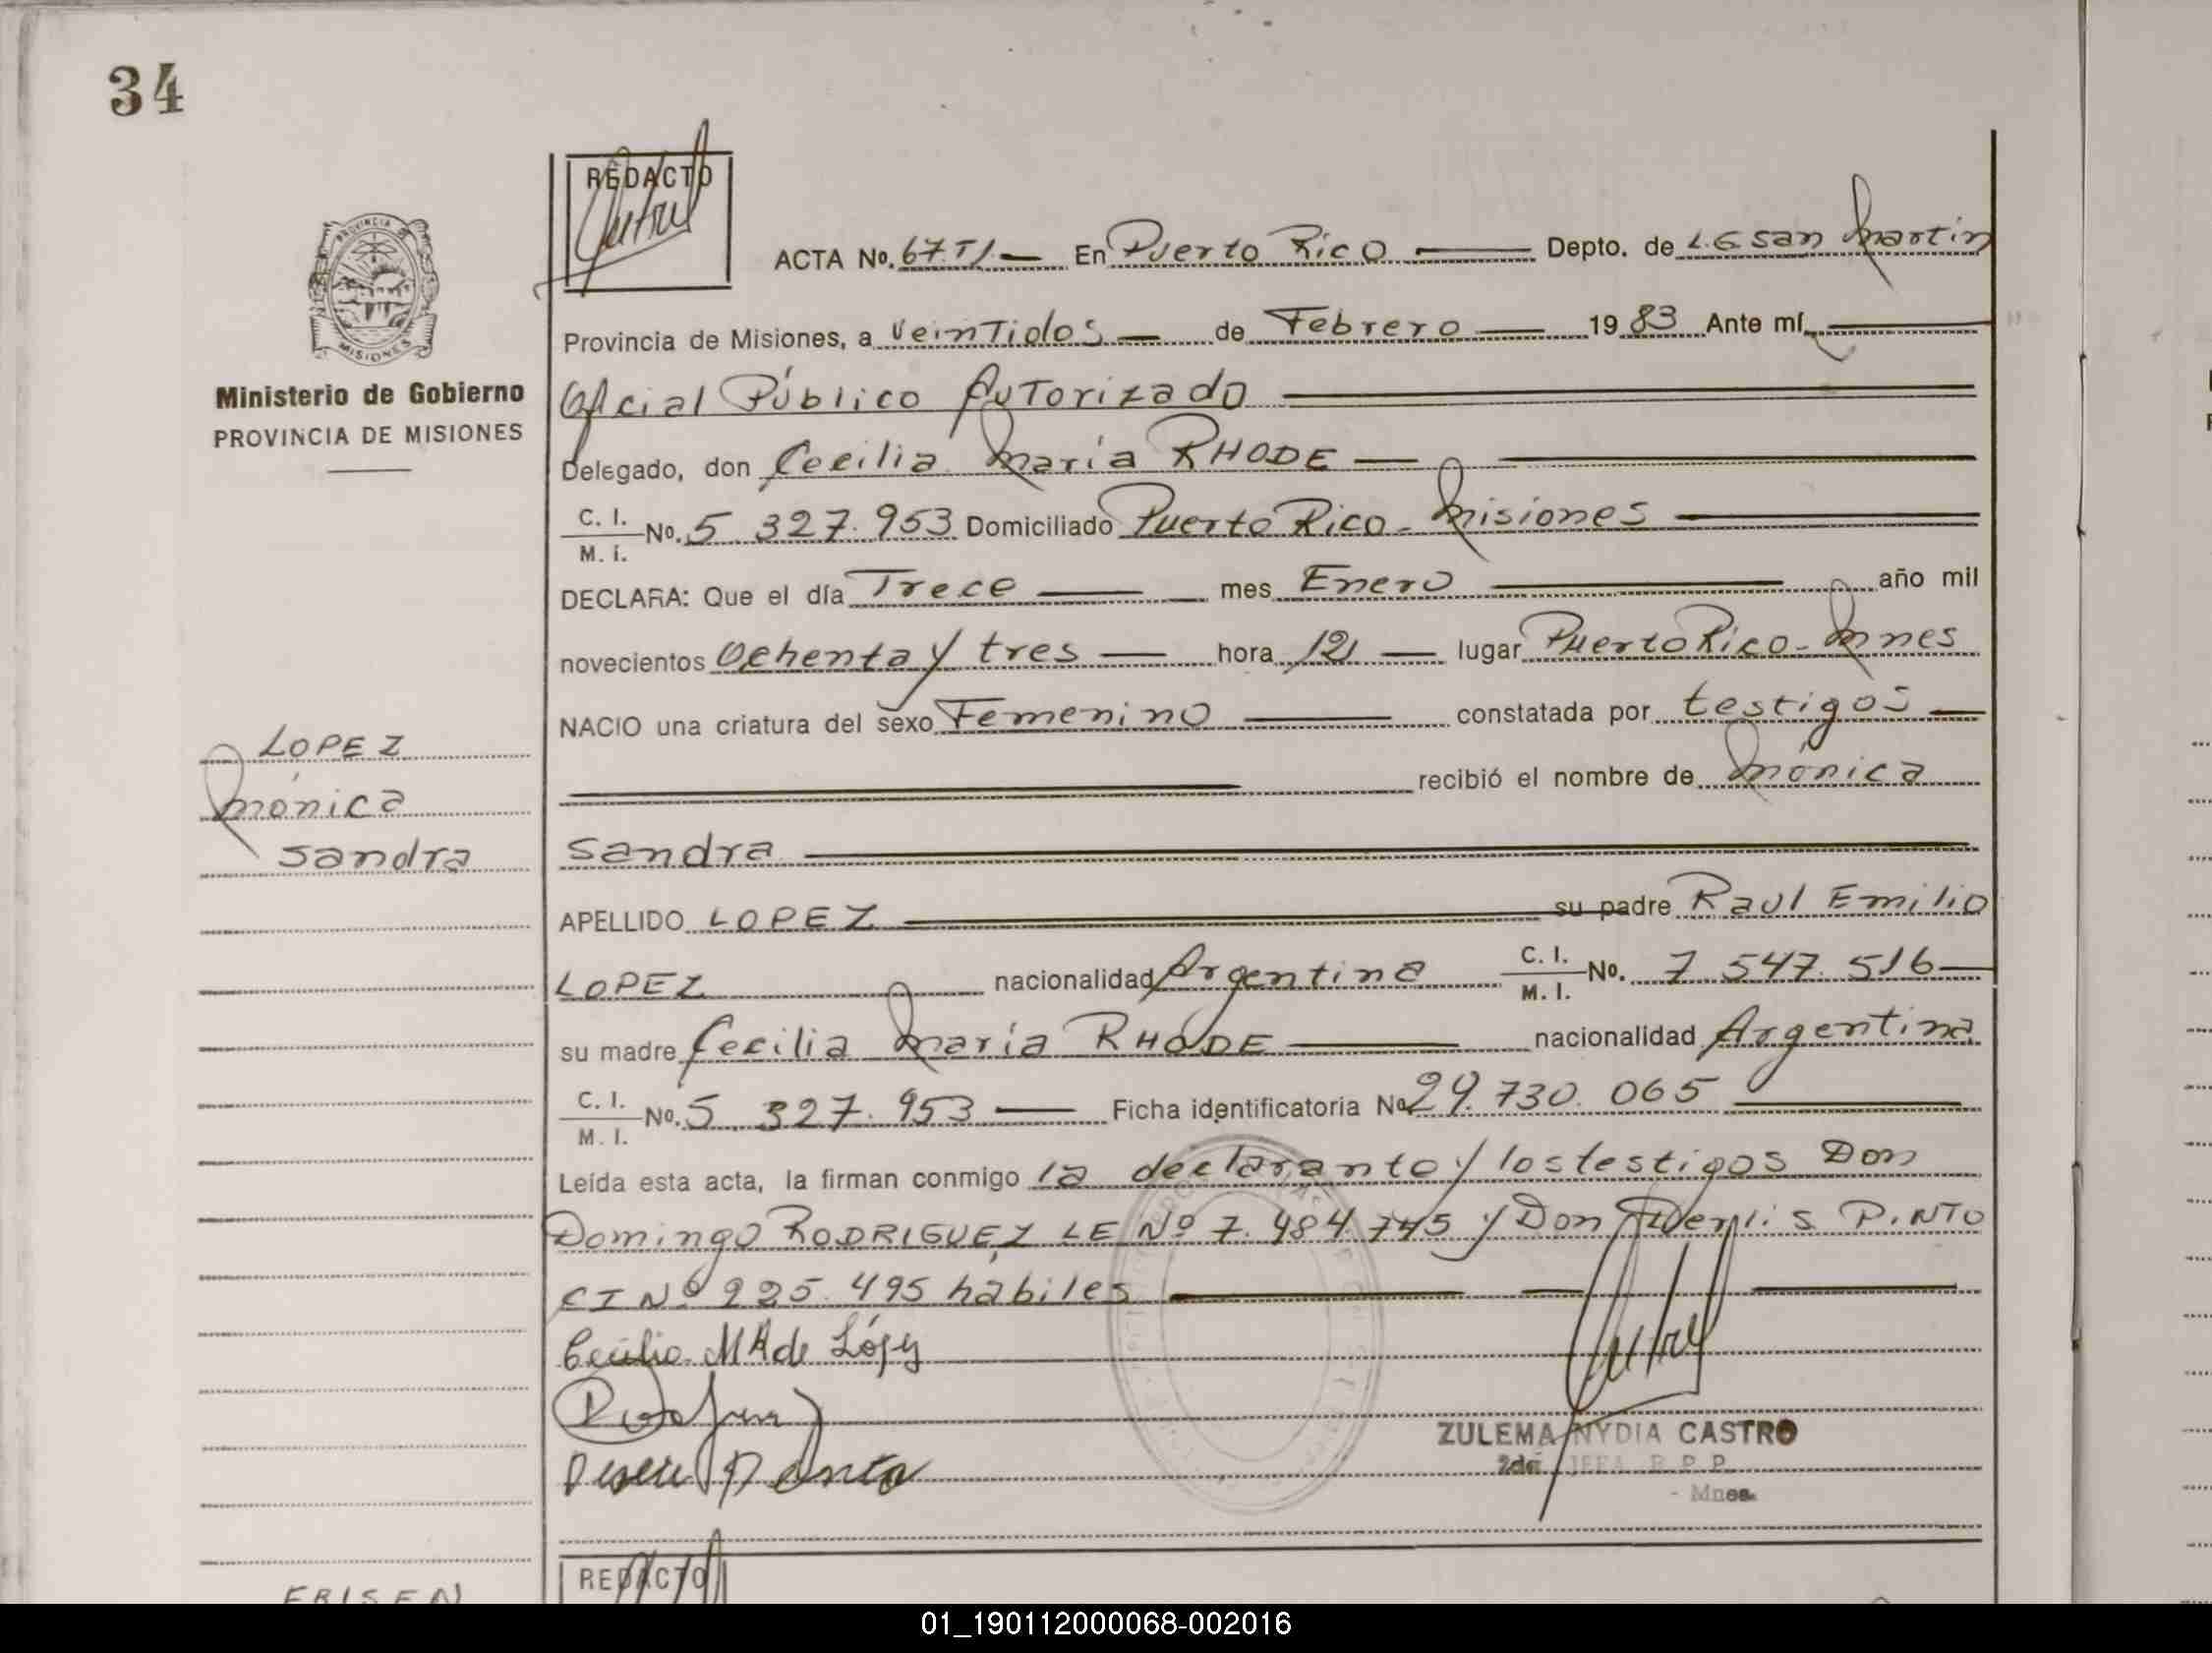 34
REDACTO
PROVINCIA DE
MISIONES
Ministerio de Gobierno
PROVINCIA DE MISIONES
ACTA No. 67 TI — En Puerto Rico — Depto. de L.G San Martin
Provincia de Misiones, a Veintidos — de Febrero — 19 83 Ante mí,
Oficial Público Autorizado
Delegado, don Cecilia María RHODE —
C. I. / M. I. No. 5 327. 953 Domiciliado Puerto Rico - Misiones —
DECLARA: Que el día Trece — mes Enero — año mil
novecientos Ochenta y tres — hora 12 — lugar Puerto Rico - Mnes
NACIO una criatura del sexo Femenino — constatada por testigos —
recibió el nombre de Mónica
Sandra
APELLIDO LOPEZ — su padre Raul Emilio
LOPEZ nacionalidad Argentina C. I. / M. I. No. 7 547. 516 —
su madre Cecilia María RHODE — nacionalidad Argentina
C. I. / M. I. No. 5. 327. 953 — Ficha identificatoria No 29. 730. 065 —
Leída esta acta, la firman conmigo la declarante y los testigos Don
Domingo RODRIGUEZ LE Nº 7. 484. 745 y Don Derlis PINTO
CI Nº 225. 495 habiles —
Cecilia M R de López
ZULEMA NYDIA CASTRO
2da. JEFA R. P. P.
- Mnes.
LOPEZ
Mónica
Sandra
REDACTO
01_190112000068-002016